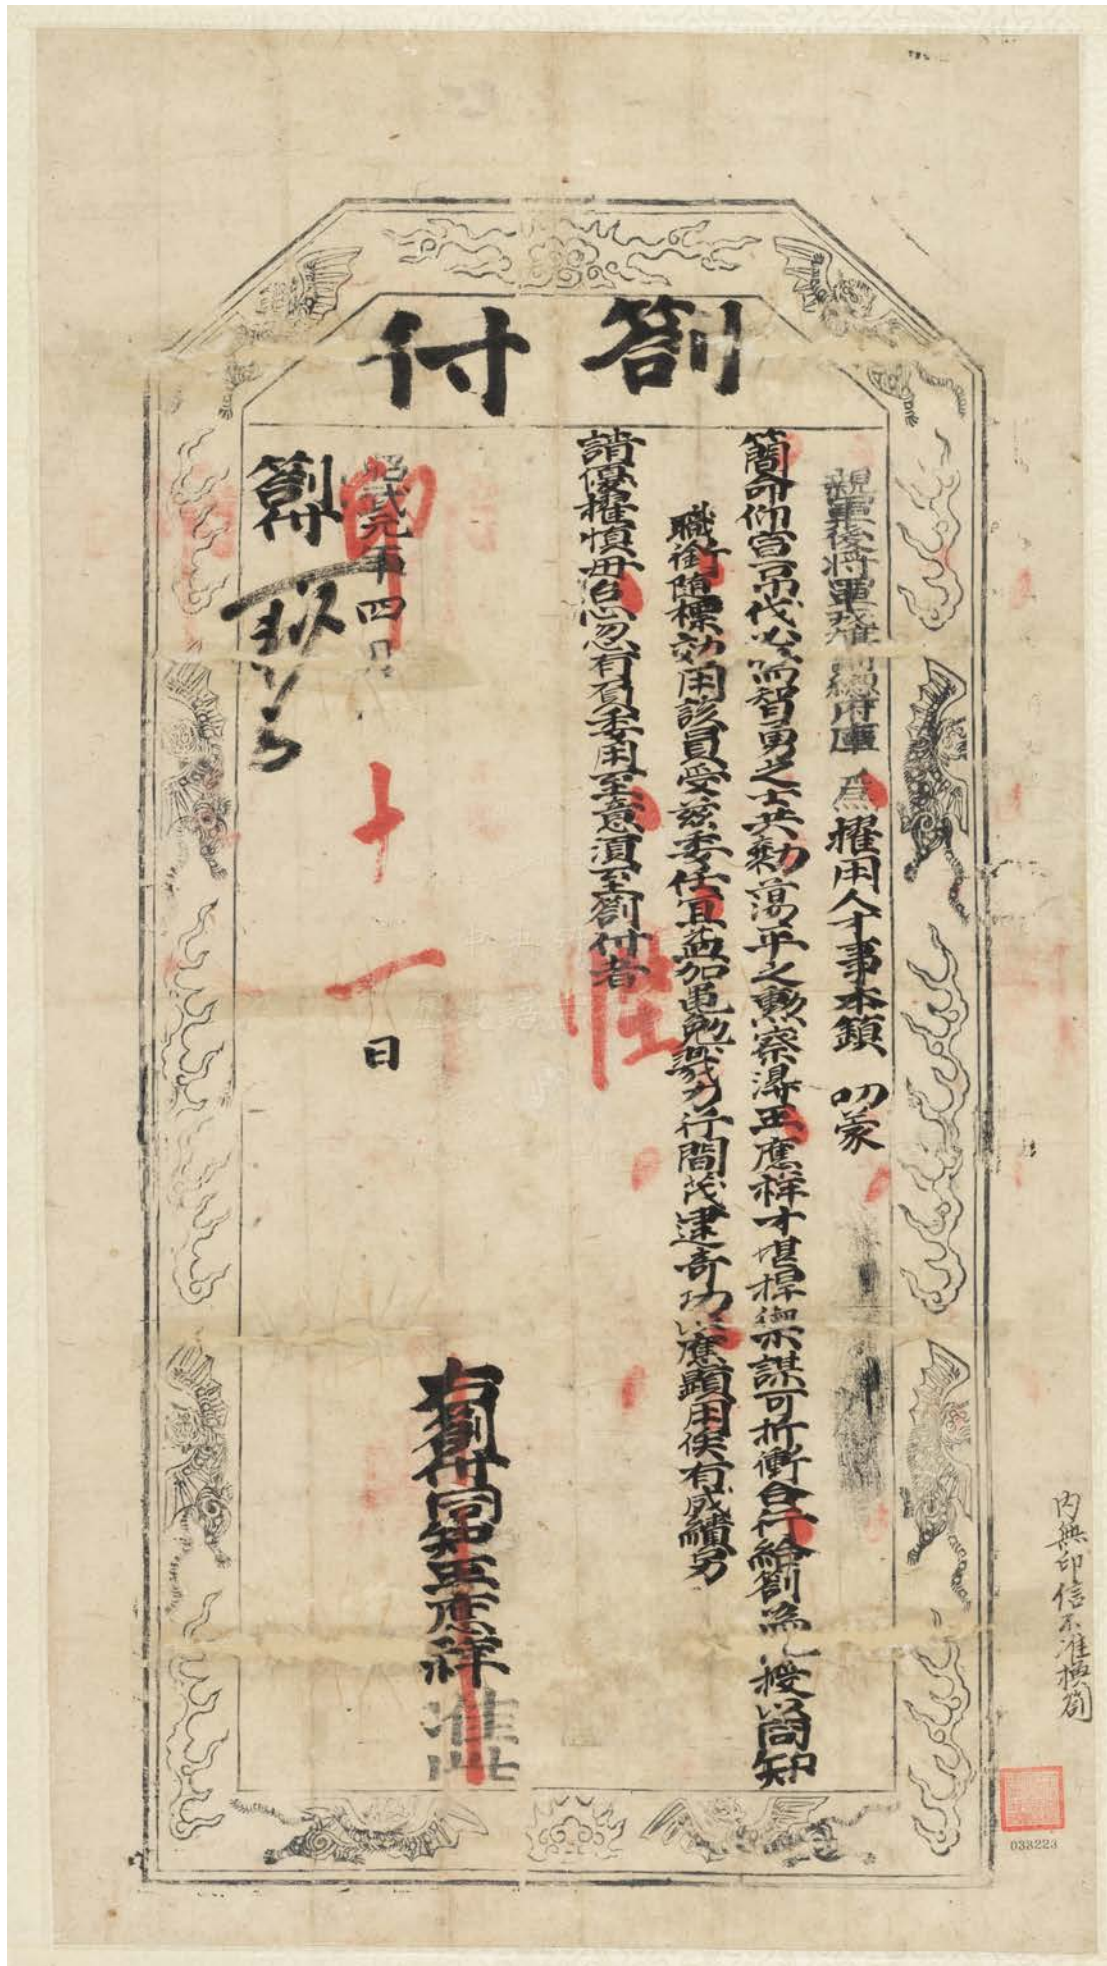 劄付
親軍後將軍 總府 爲擢用人才事本鎮 叨蒙
簡命仰宣吊伐 智勇之士共勷蕩平之勲察得王應祥才堪捍禦謀可折衝合行給劄 授以同知
職銜隨標効用該員受兹委任宜益加黽勉戮力行間茂建奇功以應顯用俟有成績另
請優擢慎毋怠忽有負委用至意湏至劄付者
右劄付同知王應祥准此
昭武元年四月十一日
劄付
内無印信不准 劄
033223